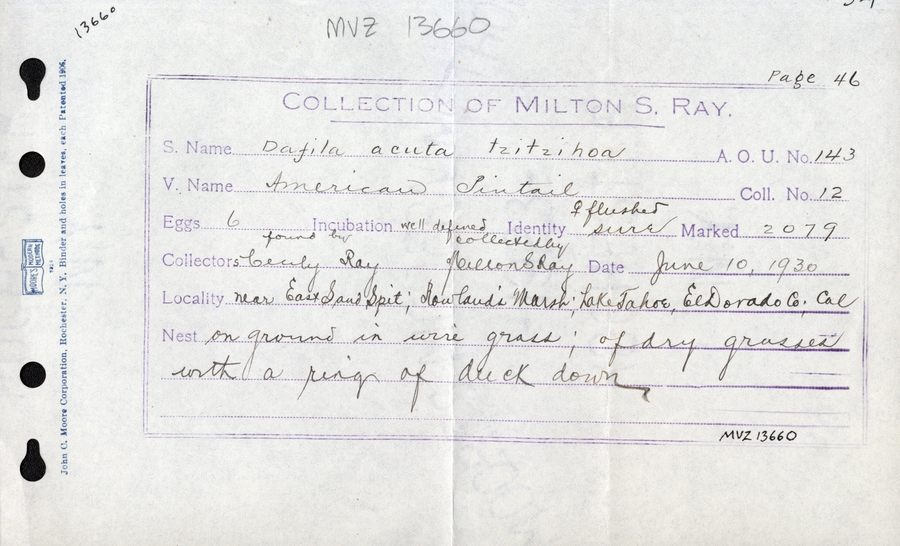 13660
MVZ 13660
Page 46
COLLECTION OF MILTON S. RAY.
S. Name Dafila acuta tzitzihoa A. O. U. No. 143
V. Name American Pintail Coll. No. 12
♀ flushed
Eggs 6 Incubation well defined Identity sure Marked 2079
found by collected by
Collectors Cecily Ray Milton S Ray Date June 10, 1930
Locality near East Sand Spit; Rowlands Marsh; Lake Tahoe, El Dorado Co; Cal
Nest on ground in wire grass; of dry grasses
with a ring of duck down
MVZ 13660
John C. Moore Corporation, Rochester, N. Y. Binder and holes in leaves, each Patented 1906.
MOORE'S MODERN METHODS